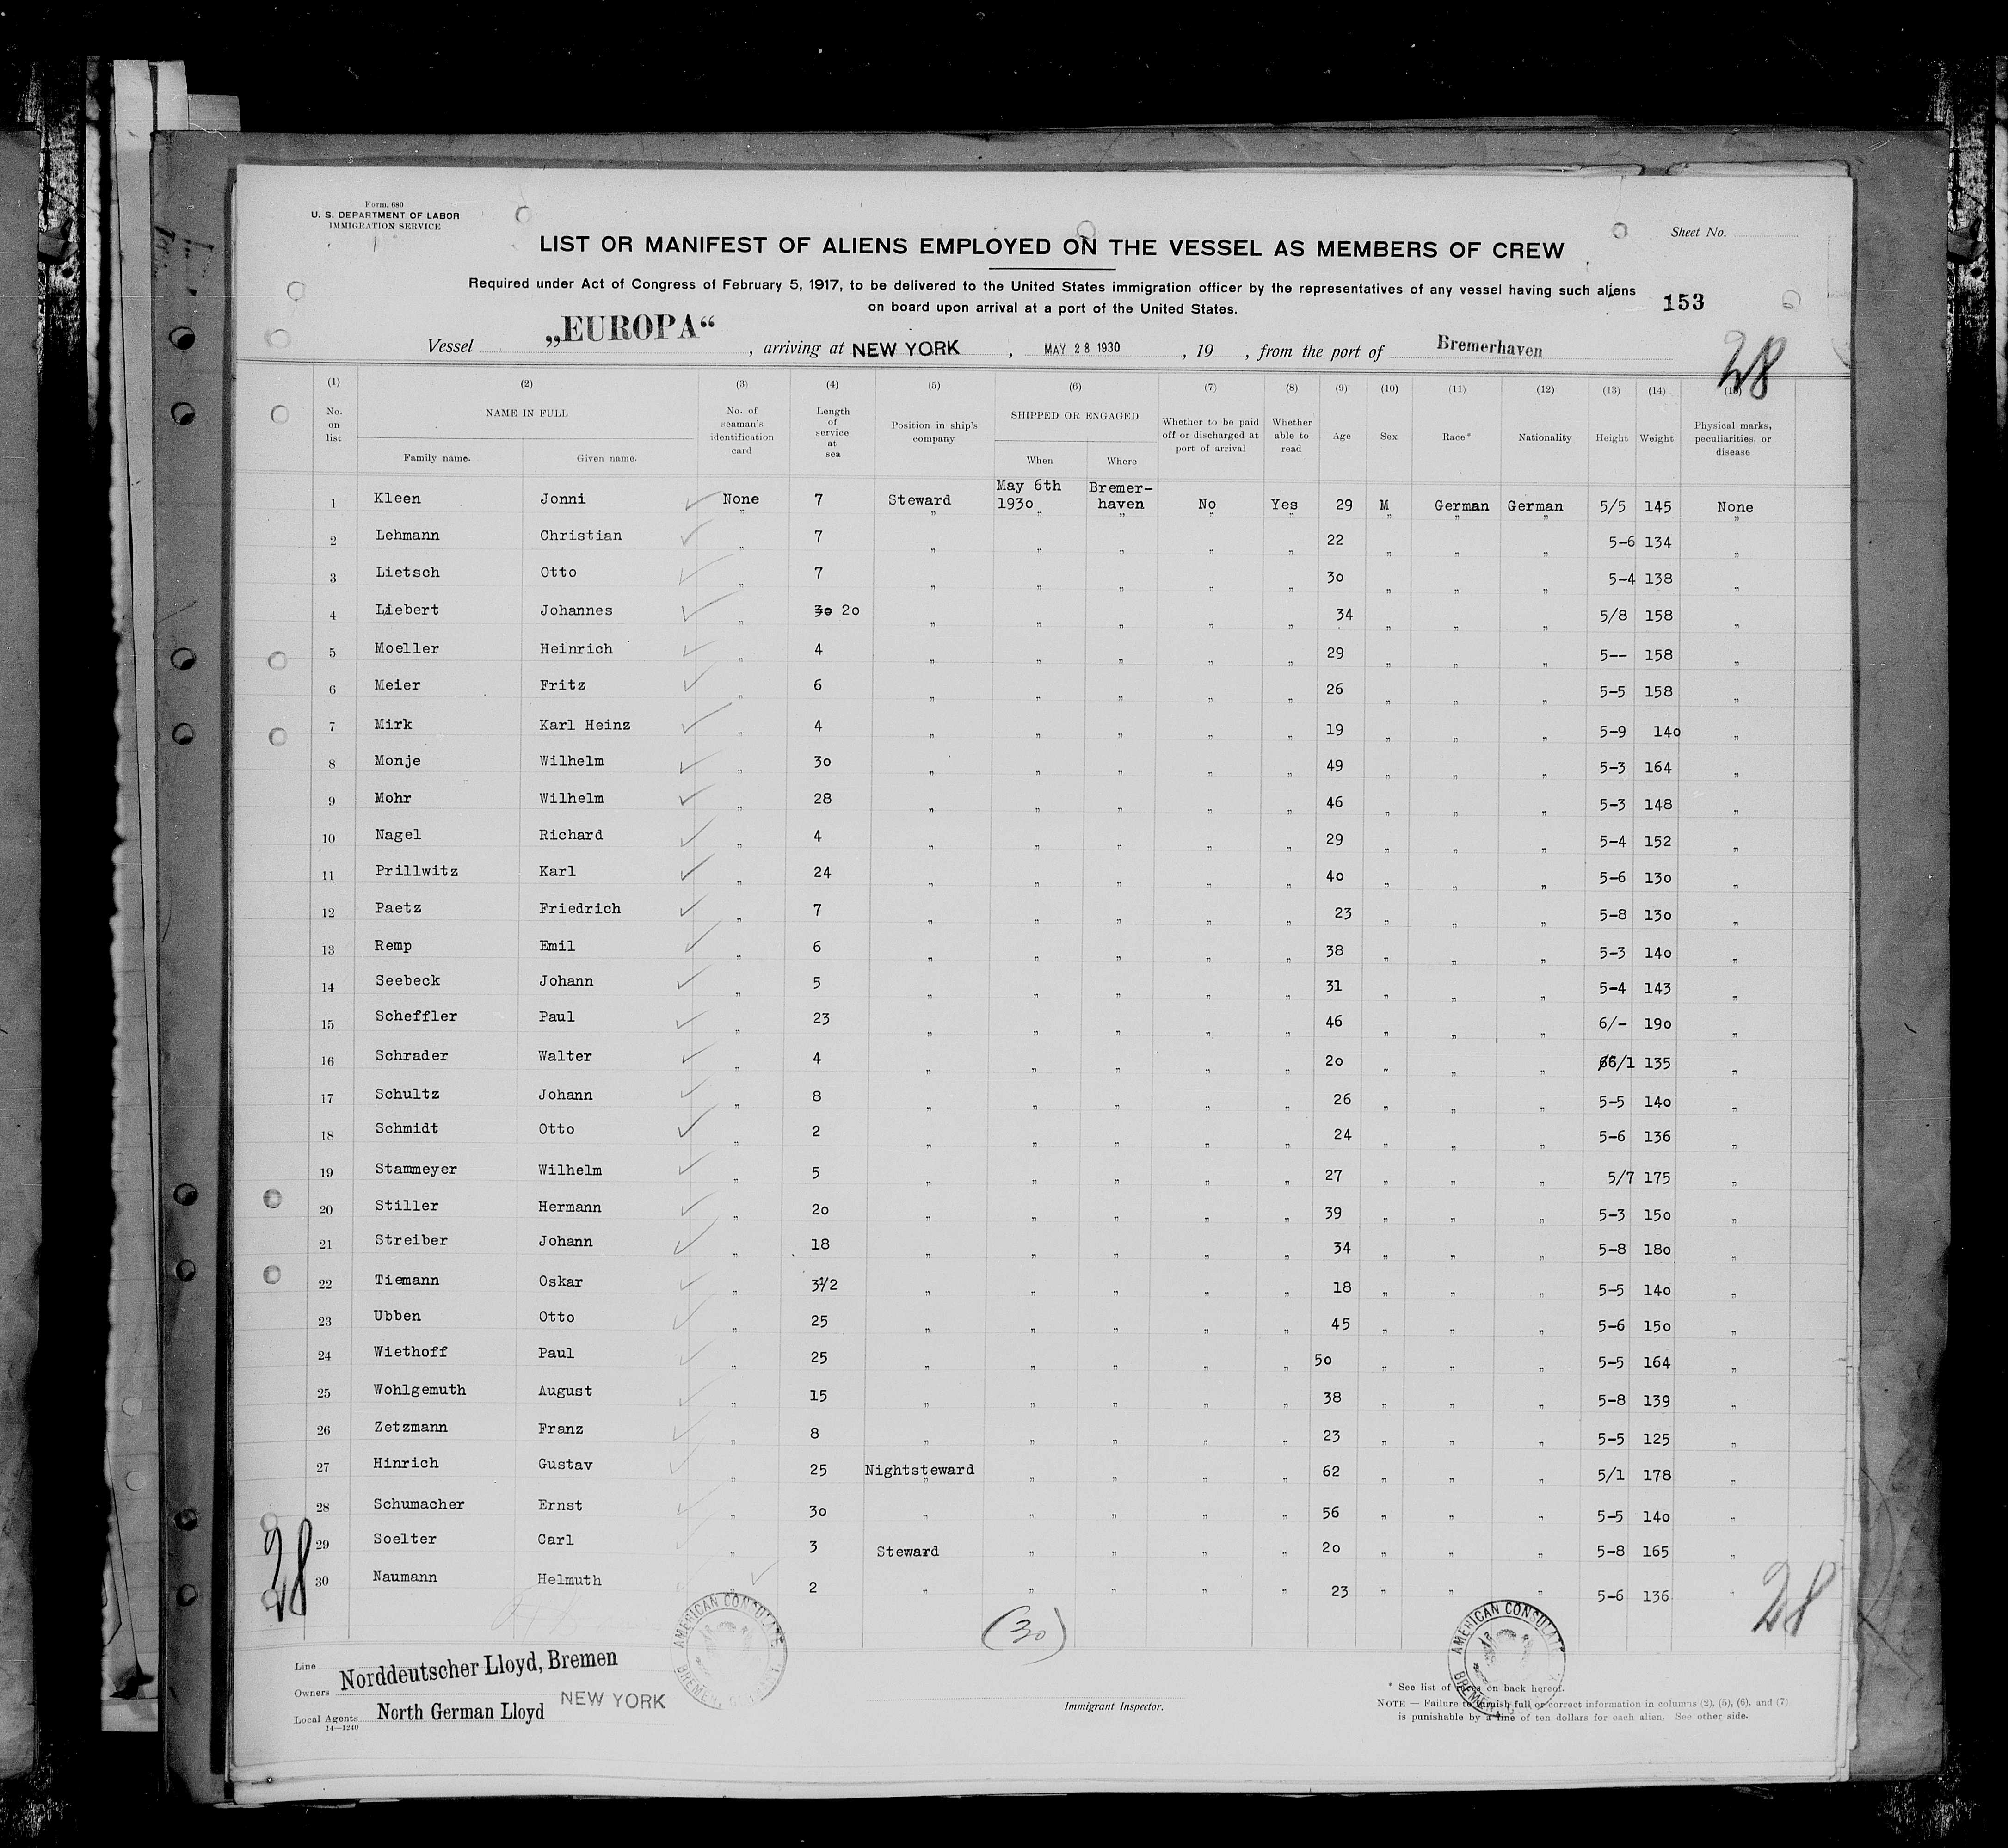 Form. 680
U. S. DEPARTMENT OF LABOR
IMMIGRATION SERVICE
Sheet No.
LIST OR MANIFEST OF ALIENS EMPLOYED ON THE VESSEL AS MEMBERS OF CREW
Required under Act of Congress of February 5, 1917, to be delivered to the United States immigration officer by the representatives of any vessel having such aliens
on board upon arrival at a port of the United States.
153
Vessel „EUROPA“, arriving at NEW YORK, MAY 28 1930, 19 , from the port of Bremerhaven
28
(1) (2) (3) (4) (5) (6) (7) (8) (9) (10) (11) (12) (13) (14) (15)
No. on list NAME IN FULL Family name. Given name. No. of seaman's identification card Length of service at sea Position in ship's company SHIPPED OR ENGAGED When Where Whether to be paid off or discharged at port of arrival Whether able to read Age Sex Race* Nationality Height Weight Physical marks, peculiarities, or disease
1 Kleen Jonni None 7 Steward May 6th 1930 Bremer-haven No Yes 29 M German German 5/5 145 None
2 Lehmann Christian „ 7 „ „ „ „ „ 22 „ „ „ 5-6 134 „
3 Lietsch Otto „ 7 „ „ „ „ „ 30 „ „ „ 5-4 138 „
4 Liebert Johannes „ 30 20 „ „ „ „ „ 34 „ „ „ 5/8 158 „
5 Moeller Heinrich „ 4 „ „ „ „ „ 29 „ „ „ 5-- 158 „
6 Meier Fritz „ 6 „ „ „ „ „ 26 „ „ „ 5-5 158 „
7 Mirk Karl Heinz „ 4 „ „ „ „ „ 19 „ „ „ 5-9 140 „
8 Monje Wilhelm „ 30 „ „ „ „ „ 49 „ „ „ 5-3 164 „
9 Mohr Wilhelm „ 28 „ „ „ „ „ 46 „ „ „ 5-3 148 „
10 Nagel Richard „ 4 „ „ „ „ „ 29 „ „ „ 5-4 152 „
11 Prillwitz Karl „ 24 „ „ „ „ „ 40 „ „ „ 5-6 130 „
12 Paetz Friedrich „ 7 „ „ „ „ „ 23 „ „ „ 5-8 130 „
13 Remp Emil „ 6 „ „ „ „ „ 38 „ „ „ 5-3 140 „
14 Seebeck Johann „ 5 „ „ „ „ „ 31 „ „ „ 5-4 143 „
15 Scheffler Paul „ 23 „ „ „ „ „ 46 „ „ „ 6/- 190 „
16 Schrader Walter „ 4 „ „ „ „ „ 20 „ „ „ 6/1 135 „
17 Schultz Johann „ 8 „ „ „ „ „ 26 „ „ „ 5-5 140 „
18 Schmidt Otto „ 2 „ „ „ „ „ 24 „ „ „ 5-6 136 „
19 Stammeyer Wilhelm „ 5 „ „ „ „ „ 27 „ „ „ 5/7 175 „
20 Stiller Hermann „ 20 „ „ „ „ „ 39 „ „ „ 5-3 150 „
21 Streiber Johann „ 18 „ „ „ „ „ 34 „ „ „ 5-8 180 „
22 Tiemann Oskar „ 31/2 „ „ „ „ „ 18 „ „ „ 5-5 140 „
23 Ubben Otto „ 25 „ „ „ „ „ 45 „ „ „ 5-6 150 „
24 Wiethoff Paul „ 25 „ „ „ „ „ 50 „ „ „ 5-5 164 „
25 Wohlgemuth August „ 15 „ „ „ „ „ 38 „ „ „ 5-8 139 „
26 Zetzmann Franz „ 8 „ „ „ „ „ 23 „ „ „ 5-5 125 „
27 Hinrich Gustav „ 25 Nightsteward „ „ „ „ 62 „ „ „ 5/1 178 „
28 Schumacher Ernst „ 30 „ „ „ „ „ 56 „ „ „ 5-5 140 „
29 Soelter Carl „ 3 Steward „ „ „ „ 20 „ „ „ 5-8 165 „
30 Naumann Helmuth „ 2 „ „ „ „ „ 23 „ „ „ 5-6 136 „
28
28
(30)
AMERICAN CONSULATE
BREMEN
AMERICAN CONSULATE
BREMEN
Line
Owners Norddeutscher Lloyd, Bremen
Local Agents North German Lloyd NEW YORK
14—1240
Immigrant Inspector.
* See list of races on back hereof.
NOTE — Failure to furnish full or correct information in columns (2), (5), (6), and (7)
is punishable by a fine of ten dollars for each alien. See other side.